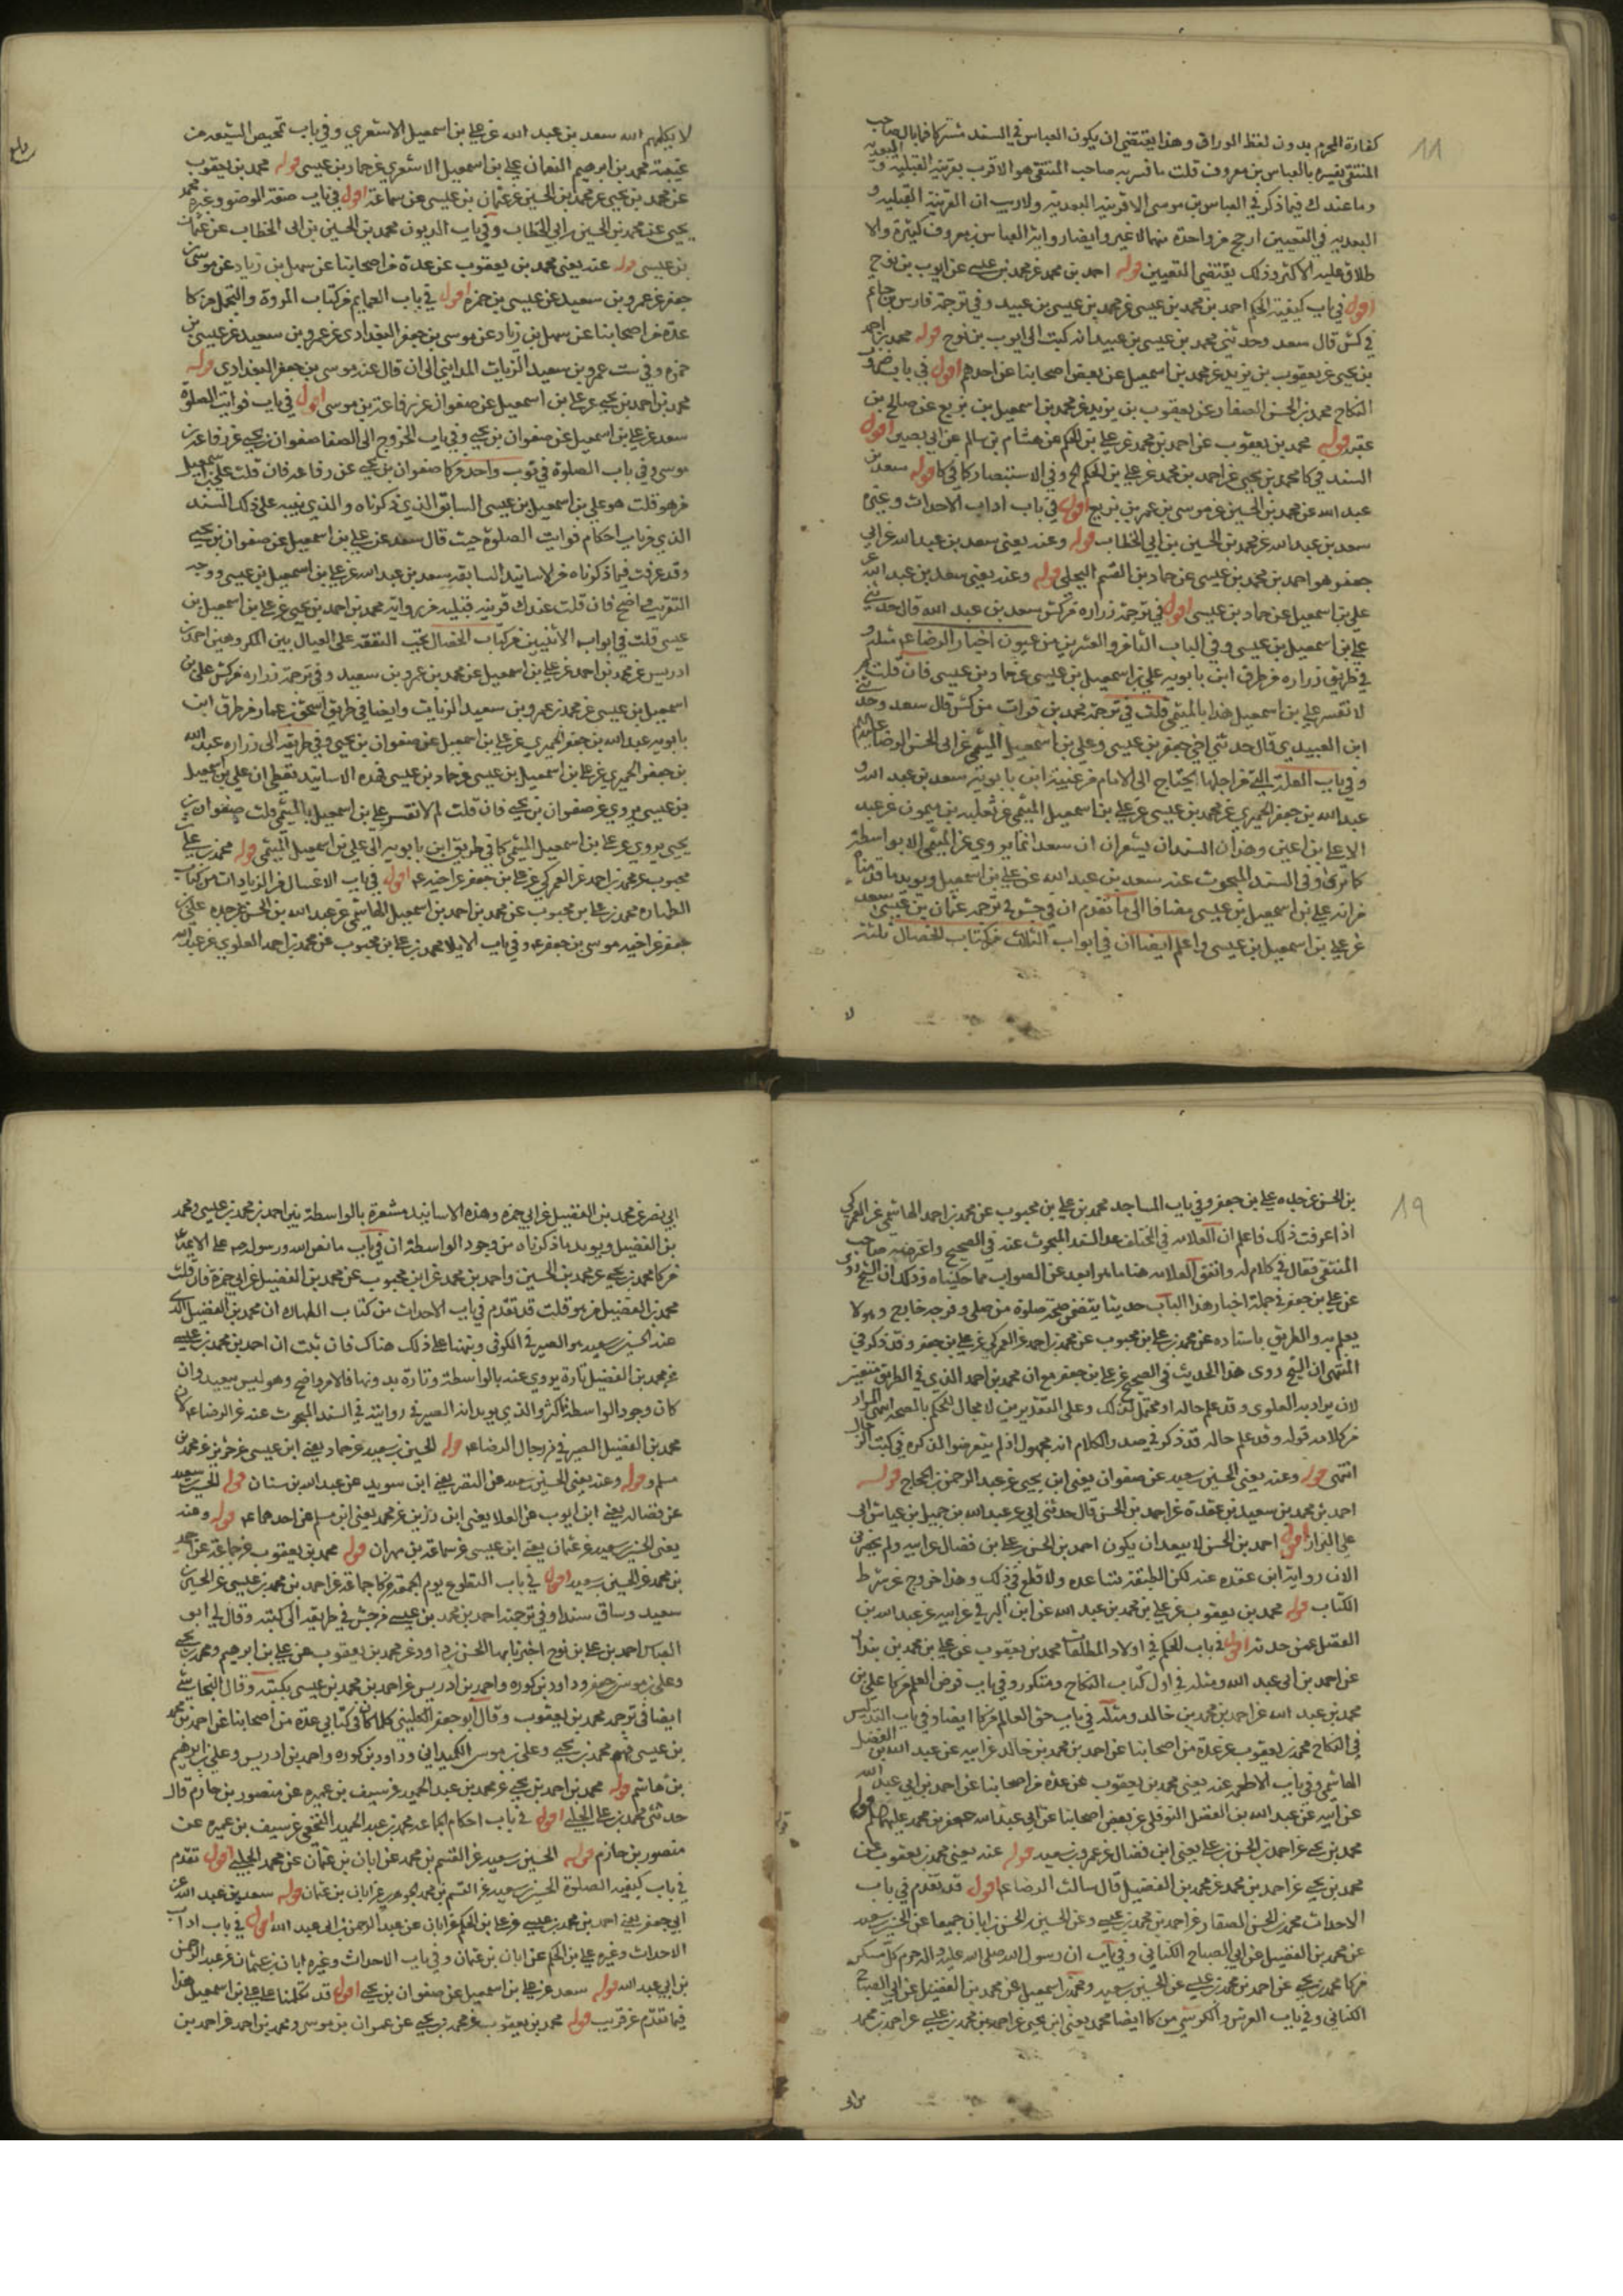 كفارة المحرم بدون لفظ الوراق وهذا يقتضي ان يكون العباس في السند مشتركا فما بال صاحب
المنتقى يفسره بالعباس بن معروف قلت ما فسر به صاحب المنتقى هو الاقرب بقرينة القبلية و البعدية
وما عندك فيما ذكر في العباس بن موسى الا قرينة البعدية ولا ريب ان القرينة القبلية و
البعدية في التعيين ارجح من واحدة منهما لا غير وايضا رواية العباس بن معروف كثيرة والا
طلاق عليه الاكثر وذلك يقتضي التعيين قوله احمد بن محمد عن محمد بن عيسى عن ايوب بن نوح
اقول في باب كيفية الحكم احمد بن محمد بن عيسى عن محمد بن عيسى بن عبيد وفي ترجمة فارس بن حاتم
في كش قال سعد وحدثني محمد بن عيسى بن عبيد انه كتب الى ايوب بن نوح قوله محمد بن احمد
بن يحيى عن يعقوب بن يزيد عن محمد بن اسمعيل عن بعض اصحابنا عن احدهم اقول في باب
النكاح محمد بن الحسن الصفار عن يعقوب بن يزيد عن محمد بن اسمعيل بن بزيع عن صالح بن
عقبه قوله محمد بن يعقوب عن احمد بن محمد عن علي بن الحكم عن هشام بن سالم عن ابي بصير اقول
السند في كا محمد بن يحيى عن احمد بن محمد عن علي بن الحكم الخ وفي الاستبصار كما في كا قوله سعد بن
عبد الله عن محمد بن الحسين عن موسى بن عمر بن بزيع اقول في باب اداب الاحداث وغيره
سعد بن عبد الله عن محمد بن الحسين بن ابي الخطاب قوله وعنه يعني سعد بن عبد الله عن ابي
جعفر هو احمد بن محمد بن عيسى عن حماد بن القسم البجلي قوله وعنه يعني سعد بن عبد الله عن
علي بن اسمعيل عن حماد بن عيسى اقول في ترجمة زراره من كش سعد بن عبد الله قال حدثني
علي بن اسمعيل بن عيسى وفي الباب الثاني والعشرين من عيون اخبار الرضا ع مثله و
في طريق زراره من طرق ابن بابويه علي بن اسمعيل بن عيسى عن حماد بن عيسى فان قلت لم
لا تفسر علي بن اسمعيل هذا بالميثمي قلت في ترجمة محمد بن فرات من كش قال سعد وحدثني
ابن العبيدي قال حدثني اخي جعفر بن عيسى وعلي بن اسمعيل الميثمي عن ابي الحسن الرضا عليه السلام
وفي باب العلة التي من اجلها يحتاج الى الامام من غيبة ابن بابويه سعد بن عبد الله و
عبد الله بن جعفر الحميري عن محمد بن عيسى عن علي بن اسمعيل الميثمي عن ثعلبه بن ميمون عن عبد
الاعلى بن اعين وهذان السندان يشعران ان سعدا انما يروي عن الميثمي الا بواسطة
كما ترى وفي السند المبحوث عنه سعد بن عبد الله عن علي بن اسمعيل ويؤيد ما قدمنا
من انه علي بن اسمعيل بن عيسى مضافا الى ما تقدم ان في جش في ترجمة عثمان بن عيسى سعد
عن علي بن اسمعيل بن عيسى واعلم ايضا ان في ابواب الثلاث من كتاب الخصال ثلثة
لا يكلمهم الله سعد بن عبد الله عن علي بن اسمعيل الاشعري وفي باب تمحيص الشيعه من
غيبة محمد بن ابرهيم النعمان علي بن اسمعيل الاشعري عن حماد بن عيسى قوله محمد بن يعقوب
عن محمد بن يحيى عن محمد بن الحسين عن عثمان بن عيسى عن سماعة اقول في باب صفة الوضوء وغيره محمد بن
يحيى عن محمد بن الحسين بن ابي الخطاب وفي باب الديون محمد بن الحسين بن ابى الخطاب عن عثمان
بن عيسى قوله عنه يعني محمد بن يعقوب عن عدة من اصحابنا عن سهل بن زياد عن موسى بن
جعفر عن عمرو بن سعيد عن عيسى بن حمزه اقول في باب العمايم من كتاب المروة والتجمل من كا
عدة من اصحابنا عن سهل بن زياد عن موسى بن جعفر البغدادي عن عمرو بن سعيد عن عيسى بن
حمزه وفي ست عمرو بن سعيد الزيات المدايني الى ان قال عنه موسى بن جعفر البغدادي قوله
محمد بن احمد بن يحيى عن علي بن اسمعيل عن صفوان عن رفاعة بن موسى اقول في باب فوايت الصلوة
سعد عن علي بن اسمعيل عن صفوان بن يحيى وفي باب الخروج الى الصفا صفوان بن يحيى عن رفاعة بن
موسى وفي باب الصلوة في ثوب واحد من كا صفوان بن يحيى عن رفاعه فان قلت علي بن اسمعيل
من هو قلت هو علي بن اسمعيل بن عيسى السابق الذي ذكرناه والذي ينبه على ذلك السند
الذي في باب احكام فوايت الصلوة حيث قال سعد عن علي بن اسمعيل عن صفوان بن يحيى
وقد عرفت فيما ذكرناه من الاسانيد السابقه سعد بن عبد الله عن علي بن اسمعيل بن عيسى ووجه
التقريب واضح فان قلت عندك قرينه قبليه من رواية محمد بن احمد بن يحيى عن علي بن اسمعيل بن
عيسى قلت في ابواب الاثنين من كتاب الخصال تجب النفقه على العيال بين المكروهين احمد بن
ادريس عن محمد بن احمد عن علي بن اسمعيل عن محمد بن عمرو بن سعيد وفي ترجمة زراره من كش علي بن
اسمعيل بن عيسى عن محمد بن عمرو بن سعيد الزيات وايضا في طريق اسحق بن عمار من طرق ابن
بابويه عبد الله بن جعفر الحميري عن علي بن اسمعيل عن صفوان بن يحيى وفي طريقه الى زراره عبد الله
بن جعفر الحميري عن علي بن اسمعيل بن عيسى عن حماد بن عيسى فهذه الاسانيد تعطي ان علي بن اسمعيل
بن عيسى يروي عن صفوان بن يحيى فان قلت لم لا تفسر علي بن اسمعيل بالميثمي قلت صفوان بن
يحيى يروي عن علي بن اسمعيل الميثمي كما في طريق ابن بابويه الى علي بن اسمعيل الميثمي قوله محمد بن علي بن
محبوب عن محمد بن احمد عن العمركي عن علي بن جعفر عن اخيه ع اقول في باب الاغسال من الزيادات من كتاب
الطهاره محمد بن علي بن محبوب عن محمد بن احمد بن اسمعيل الهاشمي عن عبد الله بن الحسن عن جده علي بن
جعفر عن اخيه موسى بن جعفر ع وفي باب الايلاء محمد بن علي بن محبوب عن محمد بن احمد العلوي عن عبد الله
بن الحسن عن جده علي بن جعفر وفي باب المساجد محمد بن علي بن محبوب عن محمد بن احمد الهاشمي عن العمركي
اذا عرفت ذلك فاعلم ان العلامه في المختلف عد السند المبحوث عنه في الصحيح واعترضه صاحب
المنتقى فقال في كلام له واتفق للعلامه هنا ما هو ابعد عن الصواب مما حكيناه وذلك ان الشيخ روى
عن علي بن جعفر في جملة اخبار هذا الباب حديثا يقتضي صحة صلوة من صلى وفرجه خارج وهو لا
يعلم به والطريق باسناده عن محمد بن علي بن محبوب عن محمد بن احمد عن العمركي عن علي بن جعفر وقد ذكر في
المنتهى ان الشيخ روى هذا الحديث في الصحيح عن علي بن جعفر مع ان محمد بن احمد الذي في الطريق متعين
لان يراد به العلوي وقد علم حاله او محتمل لذلك وعلى التقديرين لا مجال للحكم بالصحه انتهى المراد
من كلامه قوله وقد علم حاله قد ذكر في صدر الكلام انه مجهول اذ لم يتعرضوا لذكره في كتب الرجال
انتهى قوله وعنه يعني الحسين بن سعيد عن صفوان يعني ابن يحيى عن عبد الرحمن بن الحجاج قوله
احمد بن محمد بن سعيد بن عقدة عن احمد بن الحسن قال حدثني ابي عن عبد الله بن جميل بن عياش ابي
علي البزاز اقول احمد بن الحسن لا يبعد ان يكون احمد بن الحسن بن علي بن فضال عن ابيه ولم يحضرني
الان رواية ابن عقده عنه لكن الطبقه تساعده ولا قطع في ذلك وهذا خروج عن شرط
الكتاب قوله محمد بن يعقوب عن علي بن محمد بن عبد الله عن ابن البرقي عن ابيه عن عبد الله بن
الفضل عمن حدثه اقول في باب الحكم في اولاد المطلقات محمد بن يعقوب عن علي بن محمد بن بندار
عن احمد بن ابي عبد الله ومثله في اول كتاب النكاح ومتكررو في باب فرض العلم من كا علي بن
محمد بن عبد الله عن احمد بن محمد بن خالد ومثله في باب حق العالم من كا ايضا وفي باب التدليس
في النكاح محمد بن يعقوب عن عدة من اصحابنا عن احمد بن محمد بن خالد عن ابيه عن عبد الله بن الفضل
الهاشمي وفي باب الاطعمه عنه يعني محمد بن يعقوب عن عدة من اصحابنا عن احمد بن ابي عبد الله
عن ابيه عن عبد الله بن الفضل النوفلي عن بعض اصحابنا عن ابي عبد الله جعفر بن محمد عليهما السلم قوله
محمد بن يحيى عن احمد بن الحسن بن علي يعني ابن فضال عن عمرو بن سعيد قوله عنه يعني محمد بن يعقوب عن
محمد بن يحيى عن احمد بن محمد عن محمد بن الفضيل قال سالت الرضا ع اقول قد تقدم في باب
الاحداث محمد بن الحسن الصفار عن احمد بن محمد بن عيسى وعن الحسين بن الحسن بن ابان جميعا عن الحسين بن سعيد
عن محمد بن الفضيل عن ابي الصباح الكناني وفي باب ان رسول الله صلى الله عليه واله حرم كل مسكر
من كا محمد بن يحيى عن احمد بن محمد بن عيسى عن الحسين بن سعيد ومحمد بن اسمعيل عن محمد بن الفضيل عن ابي الصباح
الكناني وفي باب العرش والكرسي من كا ايضا محمد يعني ابن يحيى عن احمد بن محمد بن عيسى عن احمد بن محمد
ابي نصر عن محمد بن الفضيل عن ابي حمزه وهذه الاسانيد مشعرة بالواسطة بين احمد بن محمد بن عيسى ومحمد
بن الفضيل ويؤيد ما ذكرناه من وجود الواسطة ان في باب ما نص الله ورسوله ص على الائمة
من كا محمد بن يحيى عن محمد بن الحسين واحمد بن محمد عن ابن محبوب عن محمد بن الفضيل عن ابي حمزة فان قلت
محمد بن الفضيل من هو قلت قد تقدم في باب الاحداث من كتاب الطهاره ان محمد بن الفضيل الذي
عنه الحسين بن سعيد هو الصيرفي الكوفي ونبهنا على ذلك هناك فان ثبت ان احمد بن محمد بن عيسى
عن محمد بن الفضيل تارة يروي عنه بالواسطة وتارة بدونها فالامر واضح وهو ليس ببعيد وان
كان وجود الواسطة اكثر والذي يؤيد انه الصيرفي روايته في السند المبحوث عنه عن الرضا ع لان
محمد بن الفضيل الصيرفي من رجال الرضا ع قوله الحسين بن سعيد عن حماد يعني ابن عيسى عن حريز عن محمد بن
مسلم قوله وعنه يعني الحسين بن سعيد عن النضر يعني ابن سويد عن عبد الله بن سنان قوله الحسين بن سعيد
عن فضاله يعني ابن ايوب عن العلا يعني ابن رزين عن محمد يعني ابن مسلم عن احدهما ع قوله وعنه
يعني الحسين بن سعيد عن عثمان يعني ابن عيسى عن سماعة بن مهران قوله محمد بن يعقوب عن جماعة عن احمد
بن محمد عن الحسين بن سعيد اقول في باب التطوع يوم الجمعة من كا جماعة عن احمد بن محمد بن عيسى عن الحسين بن
سعيد وساق سندا وفي ترجمة احمد بن محمد بن عيسى من جش في طريقه الى كتبه وقال لي ابو
العباس احمد بن علي بن نوح اخبرنا بها الحسن بن داود عن محمد بن يعقوب عن علي بن ابرهيم ومحمد بن يحيى
وعلي بن موسى بن جعفر وداود بن كوره واحمد بن ادريس عن احمد بن محمد بن عيسى بكتبه وقال النجاشي
ايضا في ترجمة محمد بن يعقوب وقال ابو جعفر الكليني كلما كان في كتابي عدة من اصحابنا عن احمد بن محمد
بن عيسى فهم محمد بن يحيى وعلي بن موسى الكميداني وداود بن كوره واحمد بن ادريس وعلي بن ابرهيم
بن هاشم قوله محمد بن احمد بن يحيى عن محمد بن عبد الحميد عن سيف بن عميره عن منصور بن حازم قال
حدثني محمد بن علي الحلبي اقول في باب احكام الجماعه محمد بن عبد الحميد النخعي عن سيف بن عميره عن
منصور بن حازم قوله الحسين بن سعيد عن القسم بن محمد عن ابان بن عثمان عن محمد الحلبي اقول تقدم
في باب كيفية الصلوة الحسين بن سعيد عن القسم بن محمد الجوهري عن ابان بن عثمان قوله سعد بن عبد الله عن
ابي جعفر يعني احمد بن محمد بن عيسى عن علي بن الحكم عن ابان عن عبد الرحمن بن ابي عبد الله اقول في باب اداب
الاحداث وغيره علي بن الحكم عن ابان بن عثمان وفي باب الاحداث وغيره ابان بن عثمان عن عبد الرحمن
بن ابي عبد الله قوله سعد عن علي بن اسمعيل عن صفوان بن يحيى اقول قد تكلمنا على علي بن اسمعيل هذا
فيما تقدم عن قريب قوله محمد بن يعقوب عن محمد بن يحيى عن عمران بن موسى ومحمد بن احمد عن احمد بن